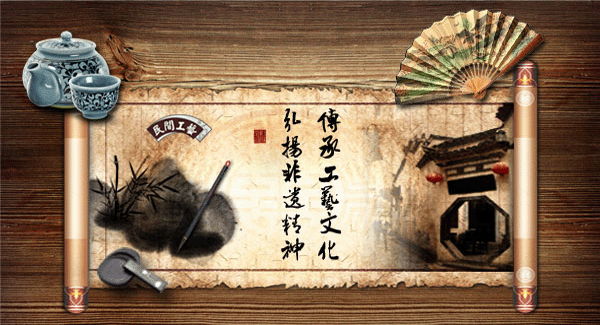 民間工藝
傳承工藝文化
弘揚非遺精神